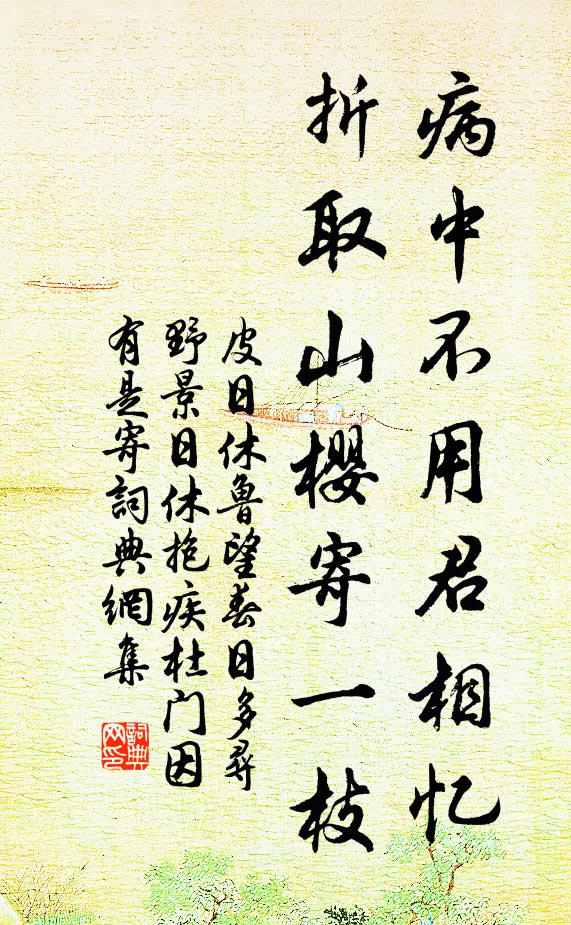 病中不用君相忆
折取山樱寄一枝
皮日休鲁望春日多寻
野景日休抱疾杜门因
有是寄詞典網集
詞典
网印